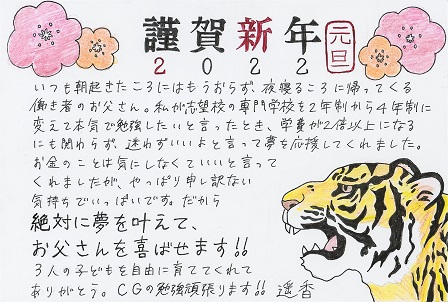 謹賀新年 元旦
2022
いつも朝起きたころにはもうおらず、夜寝るころに帰ってくる
働き者のお父さん。私が志望校の専門学校を2年制から4年制に
変えて本気で勉強したいと言ったとき、学費が2倍以上になる
にも関わらず、迷わずいいよと言って夢を応援してくれました。
お金のことは気にしなくていいと言って
くれましたが、やっぱり申し訳ない
気持ちでいっぱいです。だから
絶対に夢を叶えて、
お父さんを喜ばせます!!
3人の子どもを自由に育ててくれて
ありがとう。CGの勉強頑張ります!! 遥香